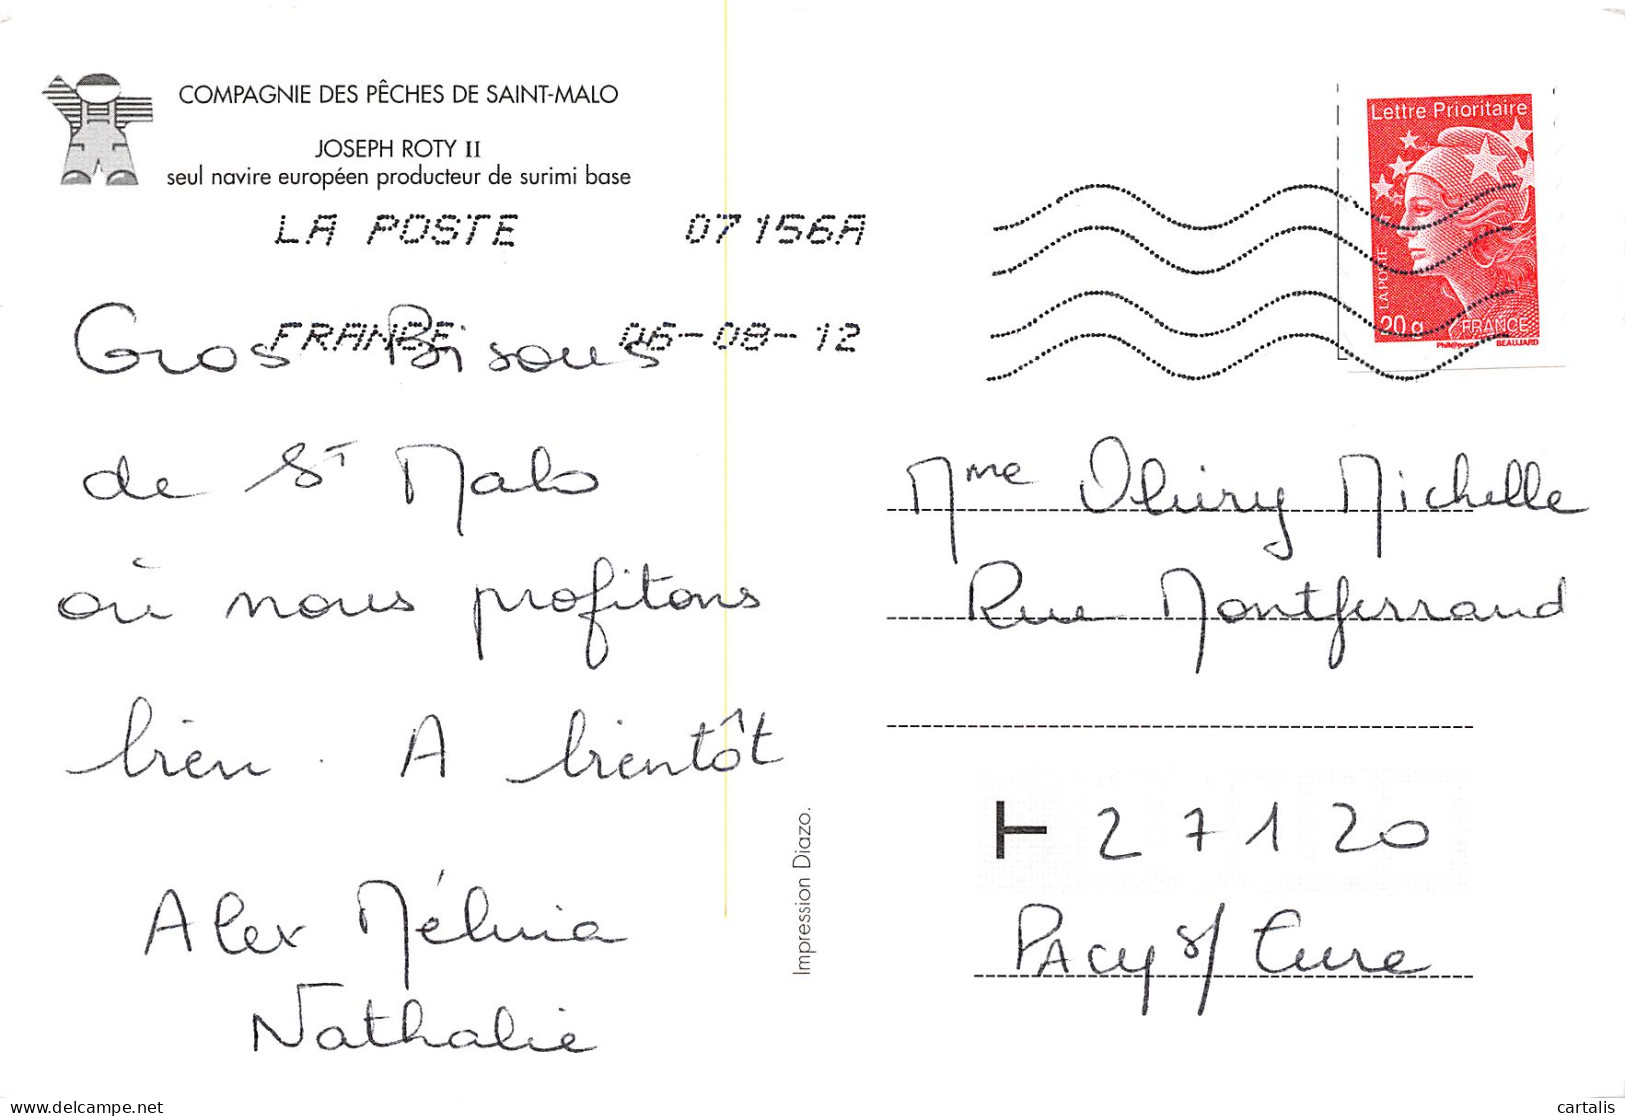 COMPAGNIE DES PÊCHES DE SAINT-MALO
JOSEPH ROTY II
seul navire européen producteur de surimi base
LA POSTE 07156A
FRANCE 06-08-12
Lettre Prioritaire
LA POSTE
20g FRANCE
Phil@poste BEAUJARD
Gros Bisous
de St Malo
où nous profitons
bien. A bientôt
Alex Mélina
Nathalie
Mme Michelle
Rue Montferrand
27120
PACY s/ Eure
Impression Diazo.
delcampe.net
cartalis